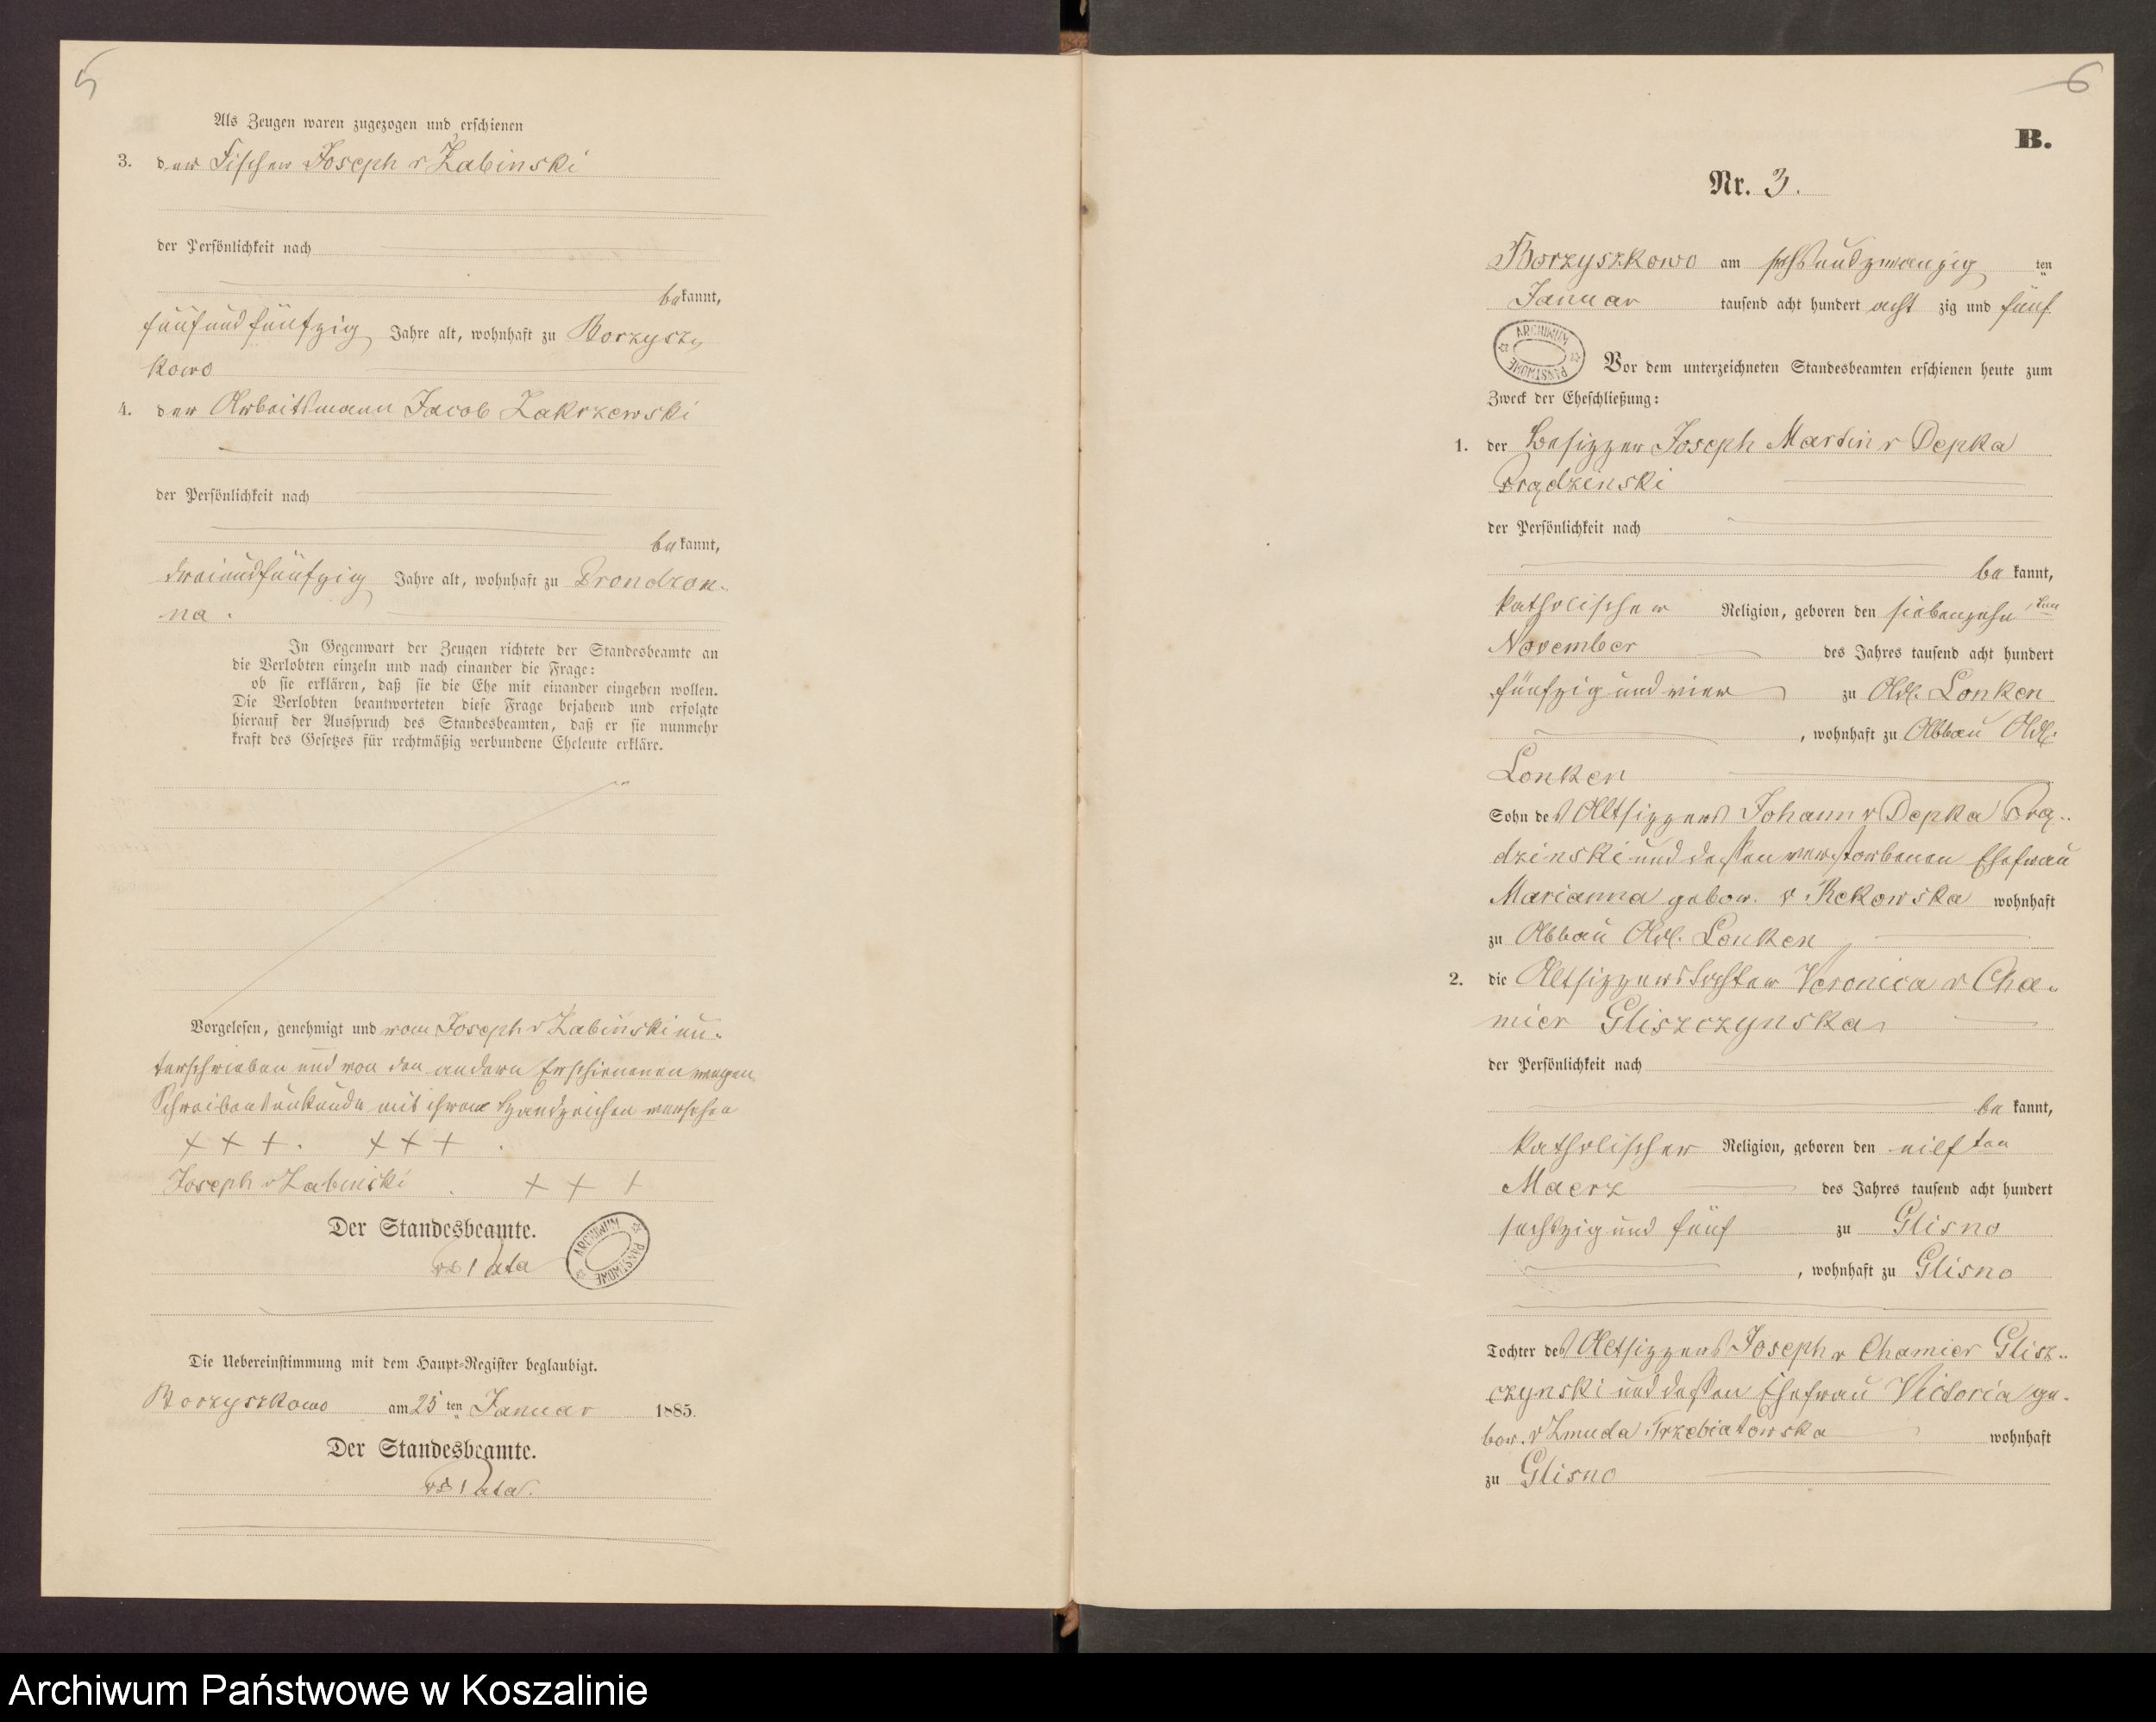 5
Als Zeugen waren zugezogen und erschienen
3. der Fischer Joseph v Zabinski
der Persönlichkeit nach
bekannt,
fünfundfünfzig Jahre alt, wohnhaft zu Borzysz-
kowo
4. der Arbeitsmann Jacob Zakrzewski
der Persönlichkeit nach
bekannt,
dreiundfünfzig Jahre alt, wohnhaft zu Prondzon-
na.
In Gegenwart der Zeugen richtete der Standesbeamte an
die Verlobten einzeln und nach einander die Frage:
ob sie erklären, daß sie die Ehe mit einander eingehen wollen.
Die Verlobten beantworteten diese Frage bejahend und erfolgte
hierauf der Ausspruch des Standesbeamten, daß er sie nunmehr
kraft des Gesetzes für rechtmäßig verbundene Eheleute erkläre.
Vorgelesen, genehmigt und vom Joseph v Zabinski un-
terschrieben und von den andern Erschienenen wegen
Schreibensunkunde mit ihrem Handzeichen versehen
+ + +. + + +.
Joseph v Zabinski. + + +
Der Standesbeamte.
ARCHIWUM PAŃSTWOWE
Die Uebereinstimmung mit dem Haupt-Register beglaubigt.
Borzyszkowo am 25 ten Januar 1885.
Der Standesbeamte.
6
B.
Nr. 3.
Borzyszkowo am sechsundzwanzig ten
Januar tausend acht hundert acht zig und fünf
ARCHIWUM PAŃSTWOWE
Vor dem unterzeichneten Standesbeamten erschienen heute zum
Zweck der Eheschließung:
1. der Besitzer Joseph Martin v Depka
Prądzinski
der Persönlichkeit nach
be kannt,
katholischer Religion, geboren den siebenzehnten
November des Jahres tausend acht hundert
fünfzig und vier zu Adl. Lonken
, wohnhaft zu Abbau Adl.
Lonken
Sohn des Altsitzers Johann v Depka Prą-
dzinski und dessen verstorbenen Ehefrau
Marianna gebor. v Rekowska wohnhaft
zu Abbau Adl. Lonken
2. die Altsitzerstochter Veronica v Cha-
mier Gliszczynska
der Persönlichkeit nach
be kannt,
katholischer Religion, geboren den eilften
Maerz des Jahres tausend acht hundert
sechszig und fünf zu Glisno
, wohnhaft zu Glisno
Tochter des Altsitzers Joseph v Chamier Glisz-
czynski und dessen Ehefrau Victoria ge-
bor. v Zmuda Trzebiatowska wohnhaft
zu Glisno
Archiwum Państwowe w Koszalinie